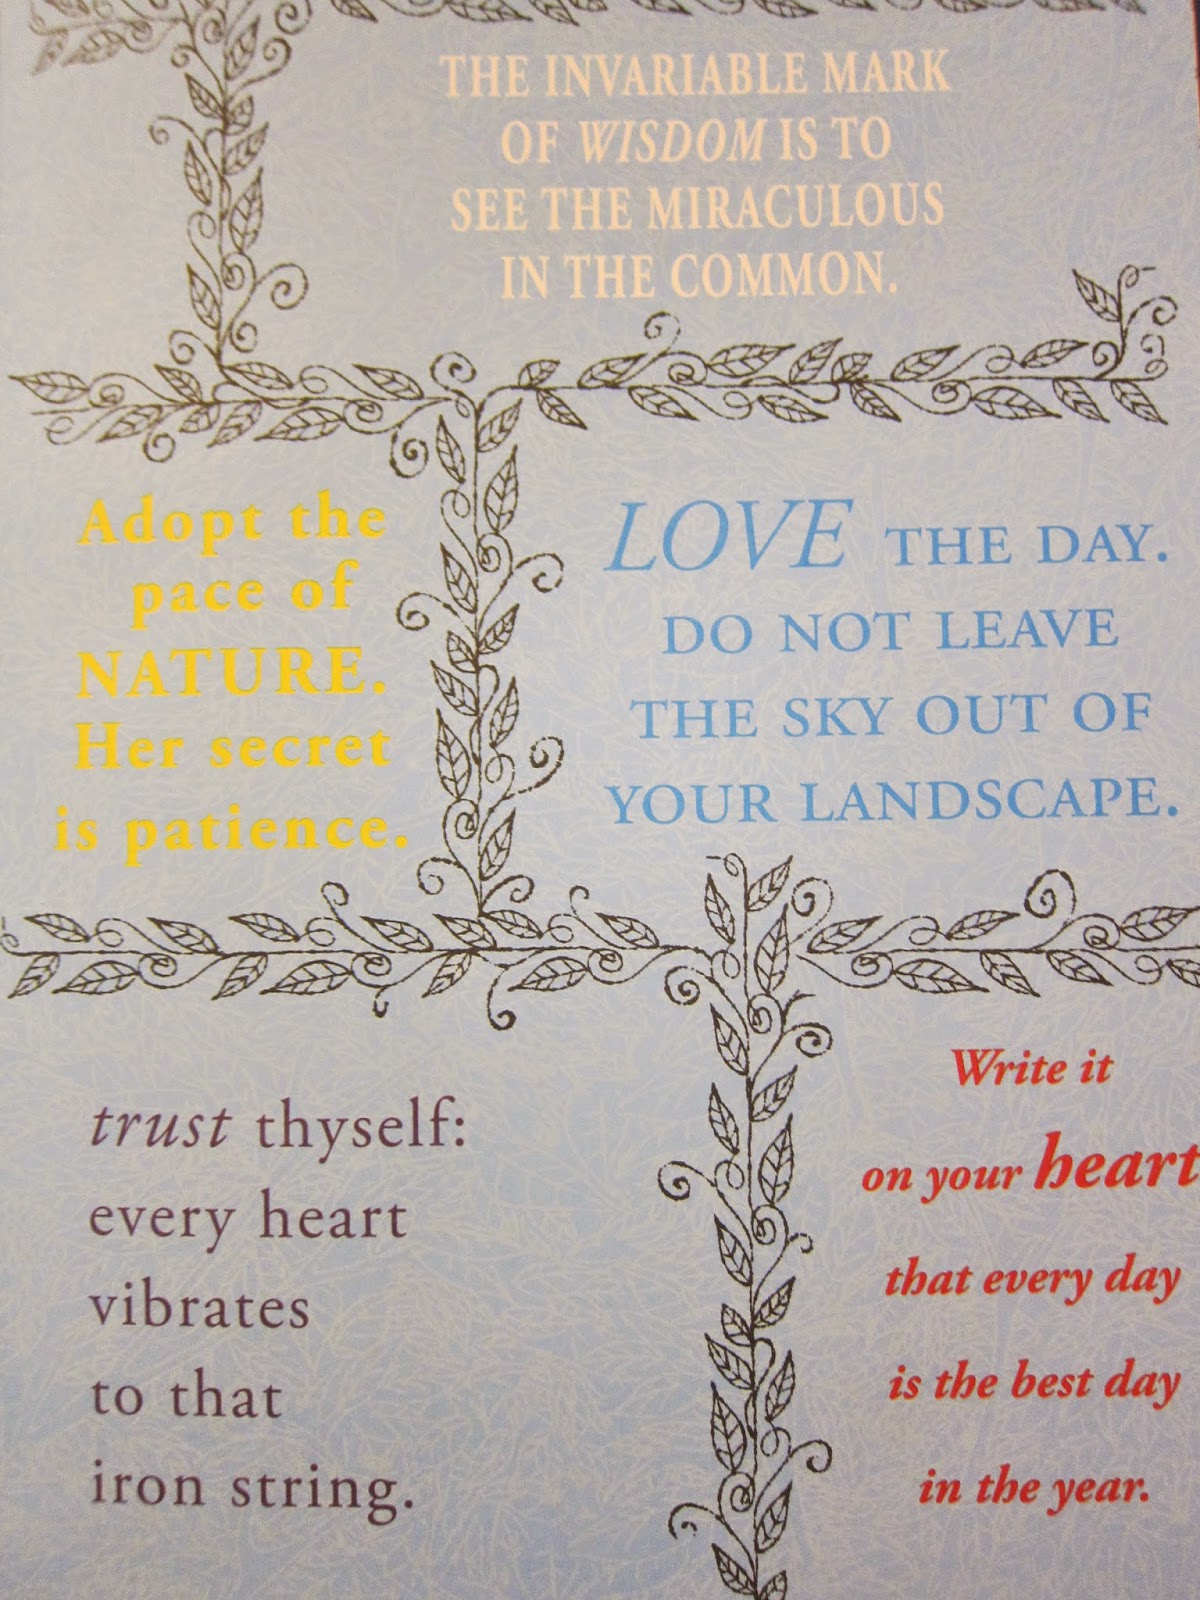 THE INVARIABLE MARK
OF WISDOM IS TO
SEE THE MIRACULOUS
IN THE COMMON.
Adopt the
pace of
NATURE.
Her secret
is patience.
LOVE THE DAY.
DO NOT LEAVE
THE SKY OUT OF
YOUR LANDSCAPE.
trust thyself:
every heart
vibrates
to that
iron string.
Write it
on your heart
that every day
is the best day
in the year.